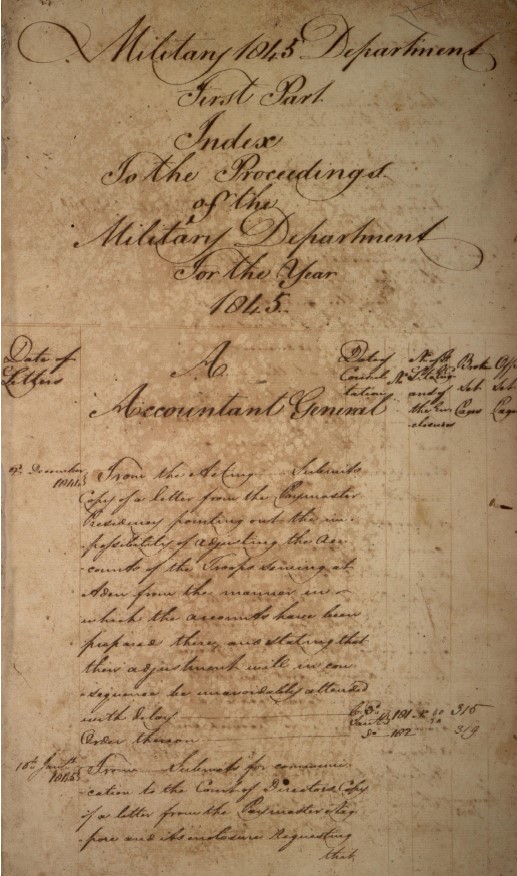 Military 1845 Department
First Part
Index
To the Proceedings
of the
Military Department
For the Year
1845.
Date of
Letters
A
Accountant General
Date of
Consul
tation
No.
and of
the En
closures
Broke
Seb
Cages
December
1844
From the Acting Submits
Copy of a letter from the Paymaster
Presidency pointing out the im-
-possibility of adjusting the ac-
-counts of the Troops serving at
Aden from the manner in
which the accounts have been
prepared there, and stating that
their adjustment will in con
-sequence be unavoidably attended
with delay 181 315
Order thereon do 182 319
15th Jany
1845
From Submits for communi-
-cation to the Court of Directors Copy
of a letter from the Paymaster Nag
-pore and its enclosure Requesting
that